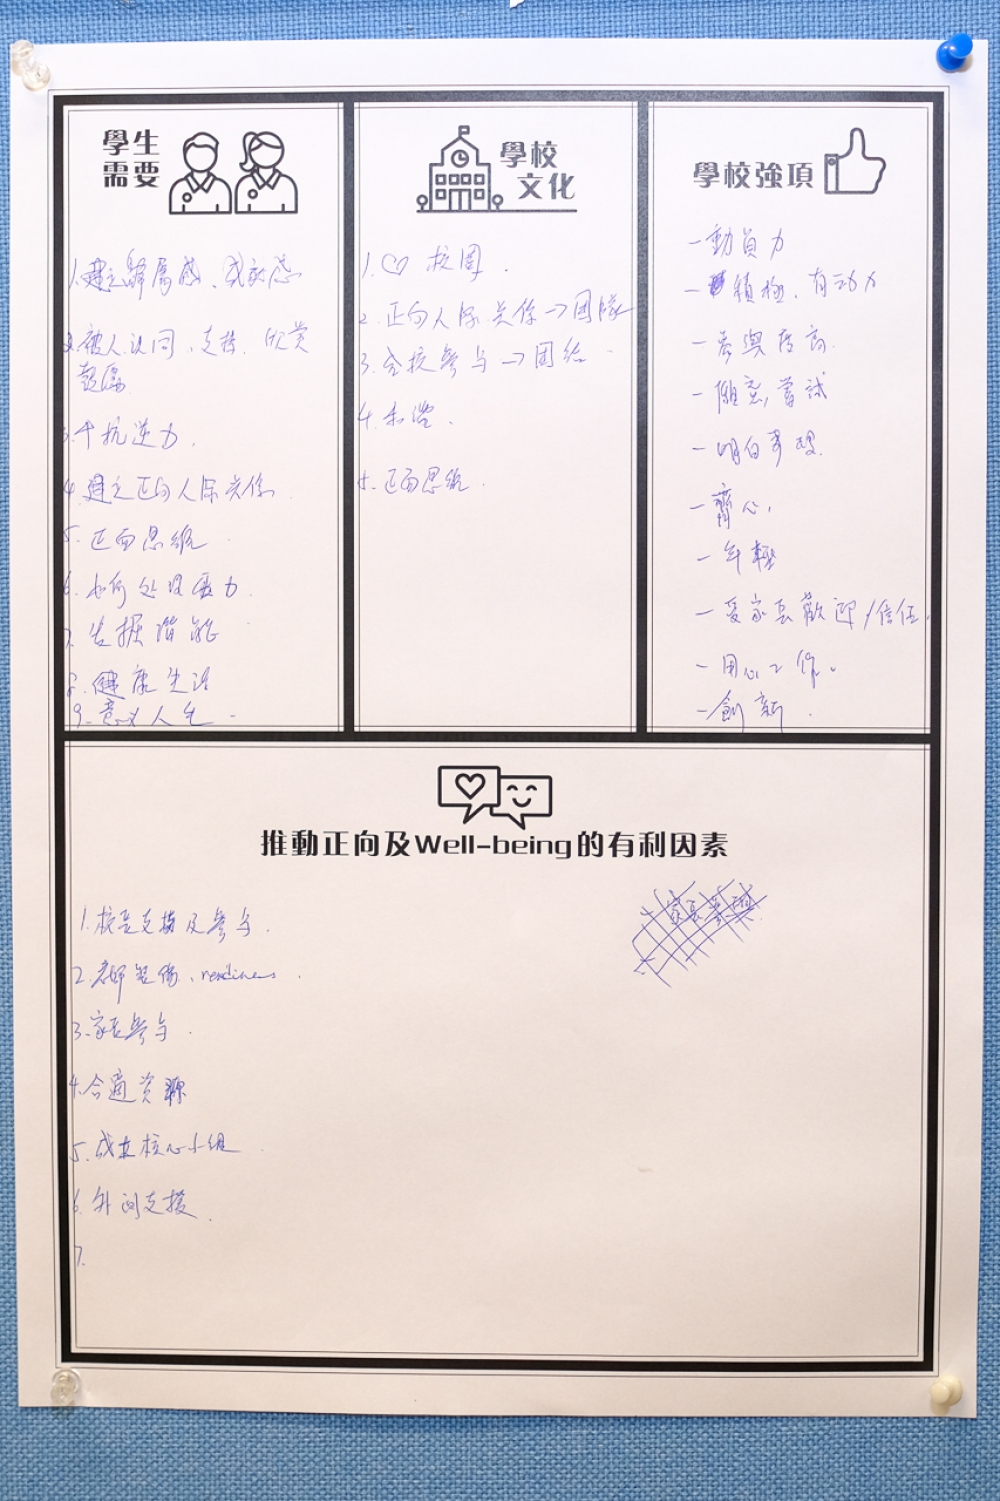 學生
需要
1.建立歸屬感、成就感
2.被人认同、支持、欣赏
鼓勵
3.抗逆力.
4.建立正向人际关係
5.正面思維
6.如何处理壓力.
7.发掘潜能
8.健康生活
9.意义人生.
學校
文化
1.♡校園.
2.正向人际关係→团隊
3.全校參与→团结.
4.和谐.
5.正面思維.
學校強項
-動員力
-積極、有动力
-參與度高.
-願意嘗試
-明白
-齊心,
-年輕
-受家長歡迎/信任.
-用心工作。
-創新.
推動正向及Well-being的有利因素
1.校長支持及參与.
2.老師、readiness.
3.家長參与.
4.合適资源
5.成立核心小组
6.外间支援.
7.